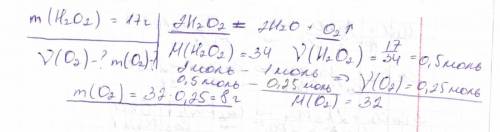 m(H₂O₂) = 17г
2H₂O₂ = 2H₂O + O₂↑
V(O₂)-? m(O₂)-?
M(H₂O₂) = 34 V(H₂O₂) = 17/34 = 0,5 моль
2 моль - 1 моль
0,5 моль - 0,25 моль ⇒ V(O₂) = 0,25 моль
m(O₂) = 32 · 0,25 = 8 г
M(O₂) = 32